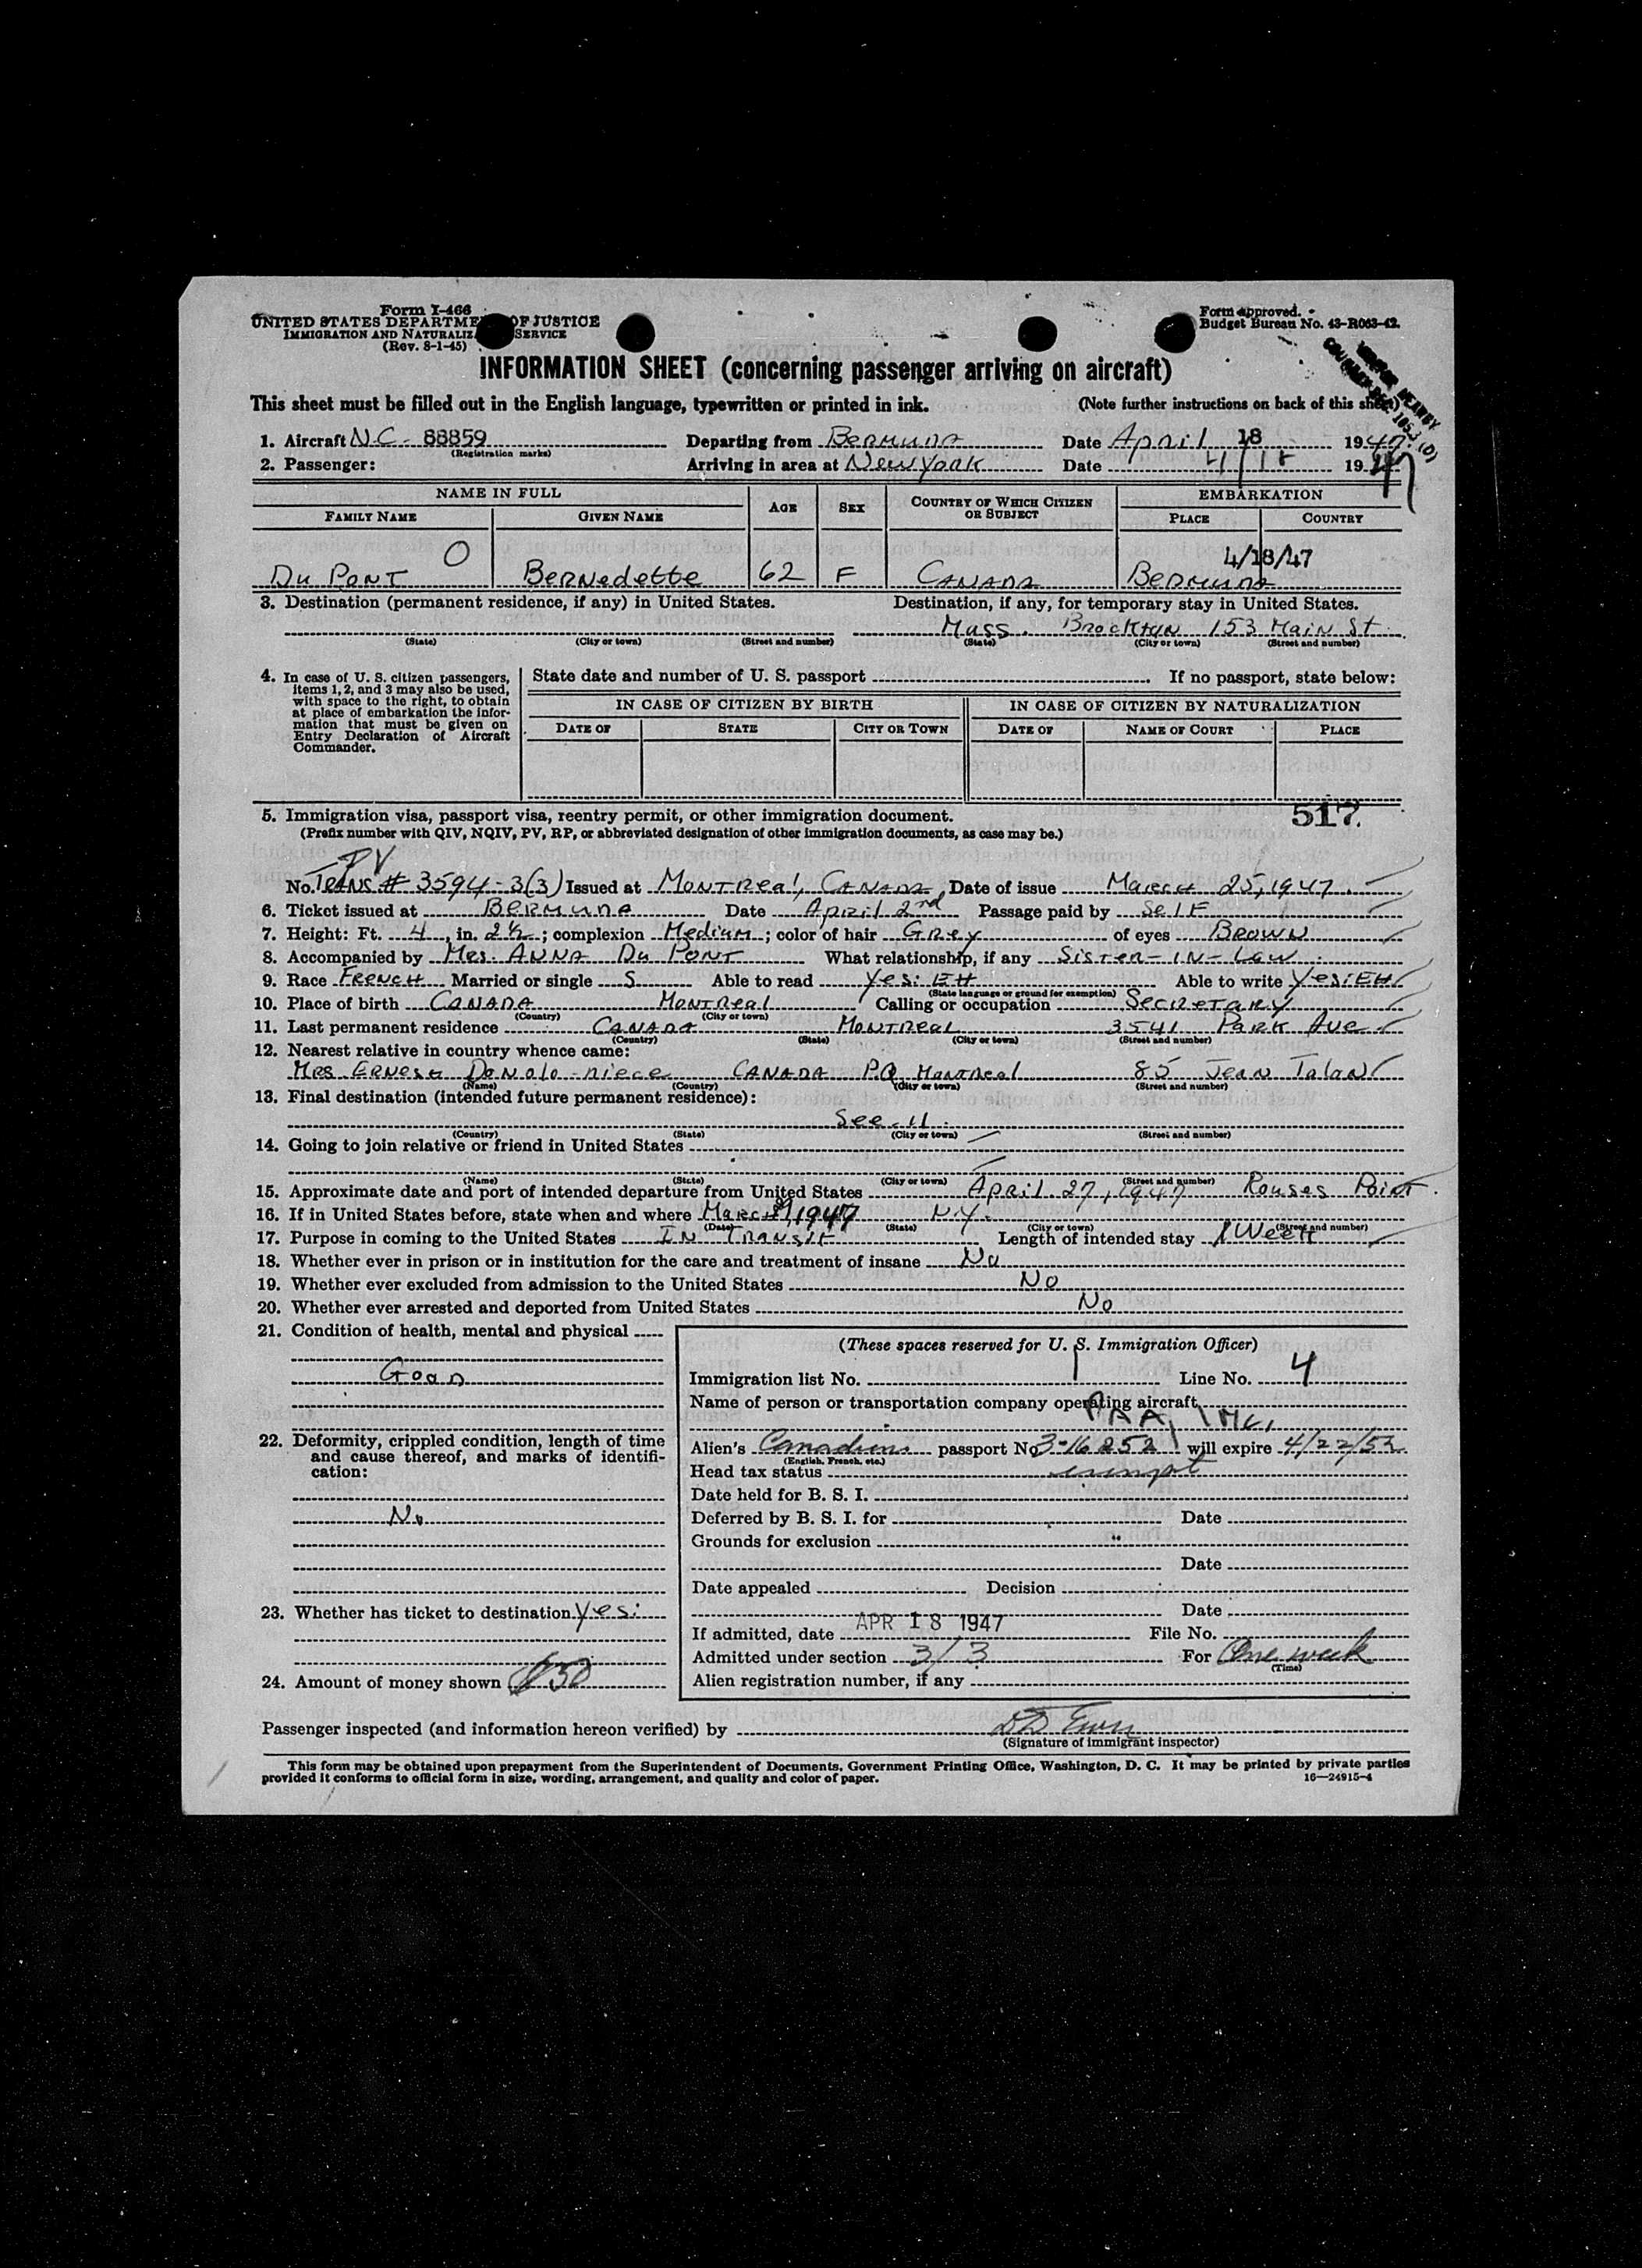 Form I-466
UNITED STATES DEPARTME OF JUSTICE
IMMIGRATION AND NATURALIZ SERVICE
(Rev. 8-1-45)
Form approved.
Budget Bureau No. 43-R063-42.
INFORMATION SHEET (concerning passenger arriving on aircraft)
This sheet must be filled out in the English language, typewritten or printed in ink. (Note further instructions on back of this sheet)
1. Aircraft N.C. 88859 Departing from Bermuda Date April 18 1947
(Registration marks)
2. Passenger: Arriving in area at New York Date 4/18 1947
NAME IN FULL AGE SEX COUNTRY OF WHICH CITIZEN OR SUBJECT EMBARKATION
FAMILY NAME GIVEN NAME PLACE COUNTRY
O 4/18/47
Du Pont Bernedette 62 F Canada Bermuda
3. Destination (permanent residence, if any) in United States. Destination, if any, for temporary stay in United States.
Mass. Brockton 153 Main St.
(State) (City or town) (Street and number) (State) (City or town) (Street and number)
4. In case of U. S. citizen passengers, items 1, 2, and 3 may also be used, with space to the right, to obtain at place of embarkation the information that must be given on Entry Declaration of Aircraft Commander.
State date and number of U. S. passport If no passport, state below:
IN CASE OF CITIZEN BY BIRTH IN CASE OF CITIZEN BY NATURALIZATION
DATE OF STATE CITY OR TOWN DATE OF NAME OF COURT PLACE
517
5. Immigration visa, passport visa, reentry permit, or other immigration document.
(Prefix number with QIV, NQIV, PV, RP, or abbreviated designation of other immigration documents, as case may be.)
PV
No. Trans # 3594-3(3) Issued at Montreal, Canada Date of issue March 25, 1947.
6. Ticket issued at Bermuda Date April 2nd Passage paid by Self
7. Height: Ft. 4, in. 2½; complexion Medium; color of hair Grey of eyes Brown
8. Accompanied by Mrs. Anna Du Pont What relationship, if any Sister-in-Law
9. Race French Married or single S Able to read Yes: EH Able to write Yes: EH
(State language or ground for exemption)
10. Place of birth Canada Montreal Calling or occupation Secretary
(Country) (City or town)
11. Last permanent residence Canada Montreal 3541 Park Ave
(Country) (State) (City or town) (Street and number)
12. Nearest relative in country whence came:
Mrs Ernest niece Canada P.Q. Montreal 85 Jean Talon
(Name) (Country) (City or town) (Street and number)
13. Final destination (intended future permanent residence):
See 11.
(Country) (State) (City or town) (Street and number)
14. Going to join relative or friend in United States
(Name) (State) (City or town) (Street and number)
15. Approximate date and port of intended departure from United States April 27, 1947 Rouses Point.
16. If in United States before, state when and where March 1947 N.Y.
(Date) (State) (City or town) (Street and number)
17. Purpose in coming to the United States In Transit Length of intended stay 1 Week
18. Whether ever in prison or in institution for the care and treatment of insane No
19. Whether ever excluded from admission to the United States No
20. Whether ever arrested and deported from United States No
21. Condition of health, mental and physical
Good
22. Deformity, crippled condition, length of time and cause thereof, and marks of identification:
No
23. Whether has ticket to destination Yes:
24. Amount of money shown $50
(These spaces reserved for U. S. Immigration Officer)
Immigration list No. 1 Line No. 4
Name of person or transportation company operating aircraft
PAA, INC,
Alien's Canadian passport No. 3-16252 will expire 4/22/52
(English, French, etc.)
Head tax status exempt
Date held for B. S. I.
Deferred by B. S. I. for Date
Grounds for exclusion
Date
Date appealed Decision
Date
If admitted, date APR 18 1947 File No.
Admitted under section 3/3 For One week
(Time)
Alien registration number, if any
Passenger inspected (and information hereon verified) by
(Signature of immigrant inspector)
This form may be obtained upon prepayment from the Superintendent of Documents, Government Printing Office, Washington, D. C. It may be printed by private parties
provided it conforms to official form in size, wording, arrangement, and quality and color of paper. 16—24915-4